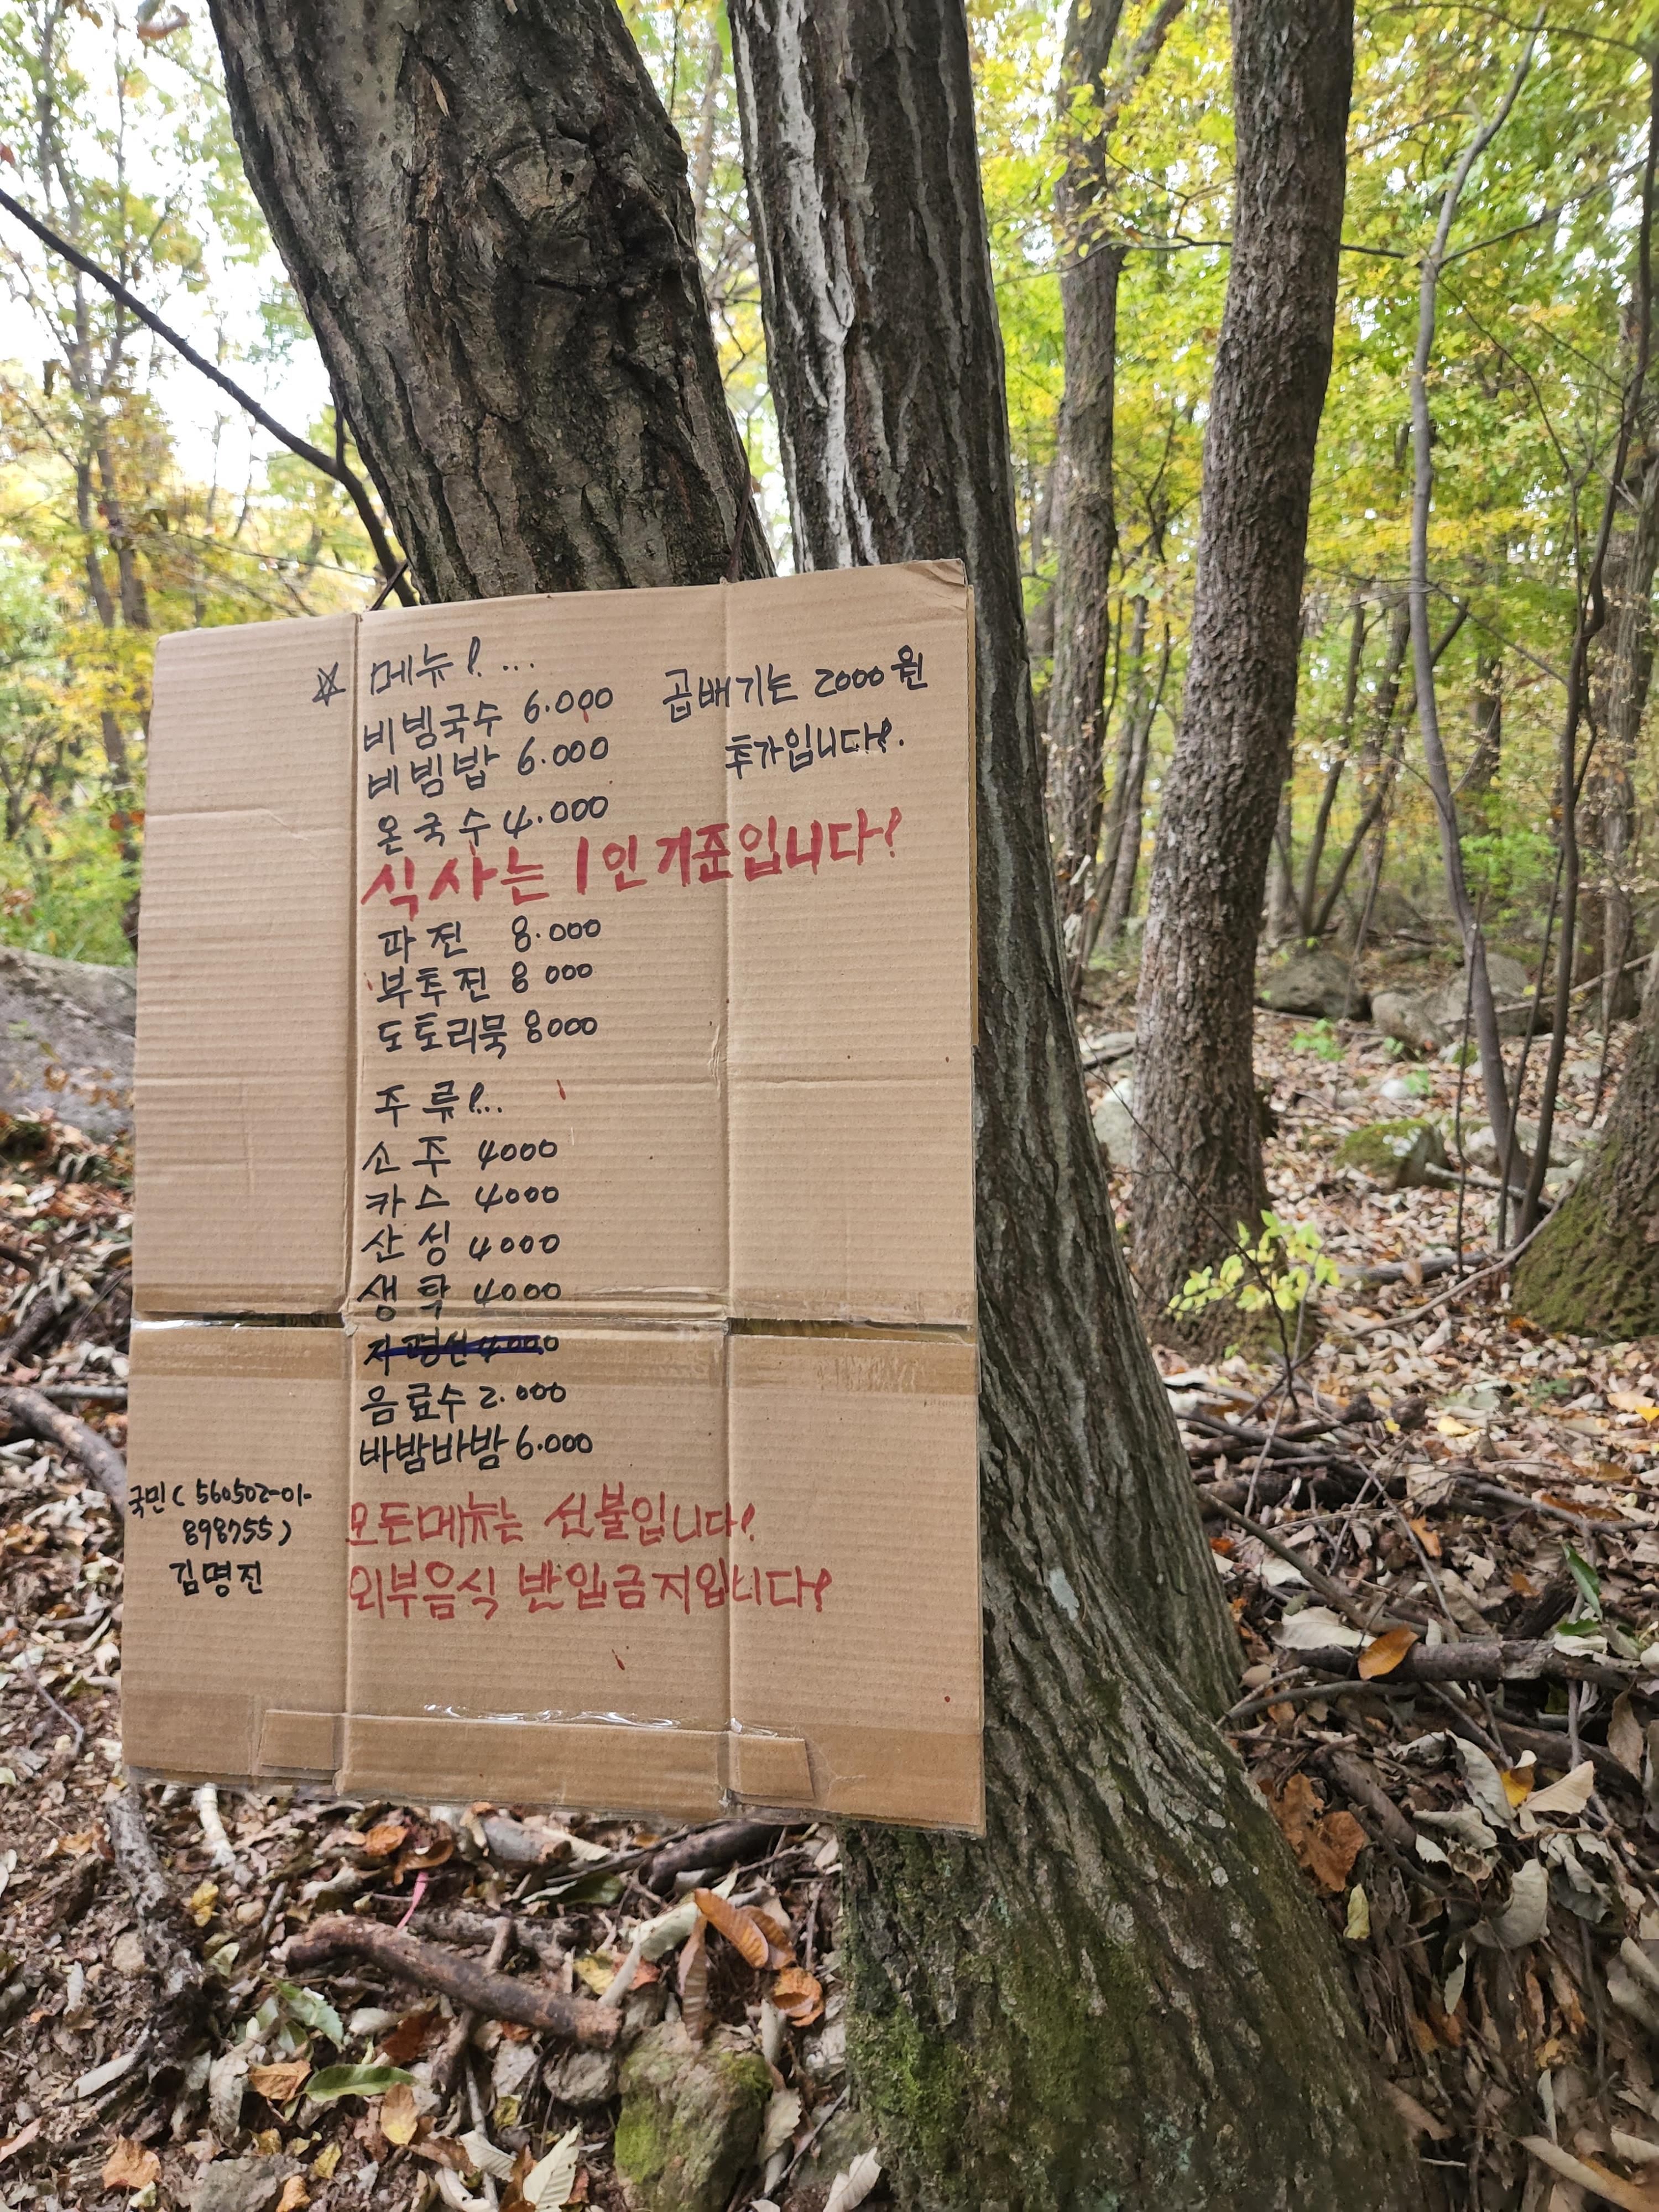 ☆ 메뉴!...
비빔국수 6.000
곱배기는 2000원
추가입니다!.
비빔밥 6.000
온국수 4.000
식사는 1인기준입니다!
파전 8.000
부추전 8000
도토리묵 8000
주류!...
소주 4000
카스 4000
산성 4000
생탁 4000
음료수 2.000
바밤바밤 6.000
국민( 560502-01-
898755)
김명진
모든메뉴는 선불입니다!
외부음식 반입금지입니다!